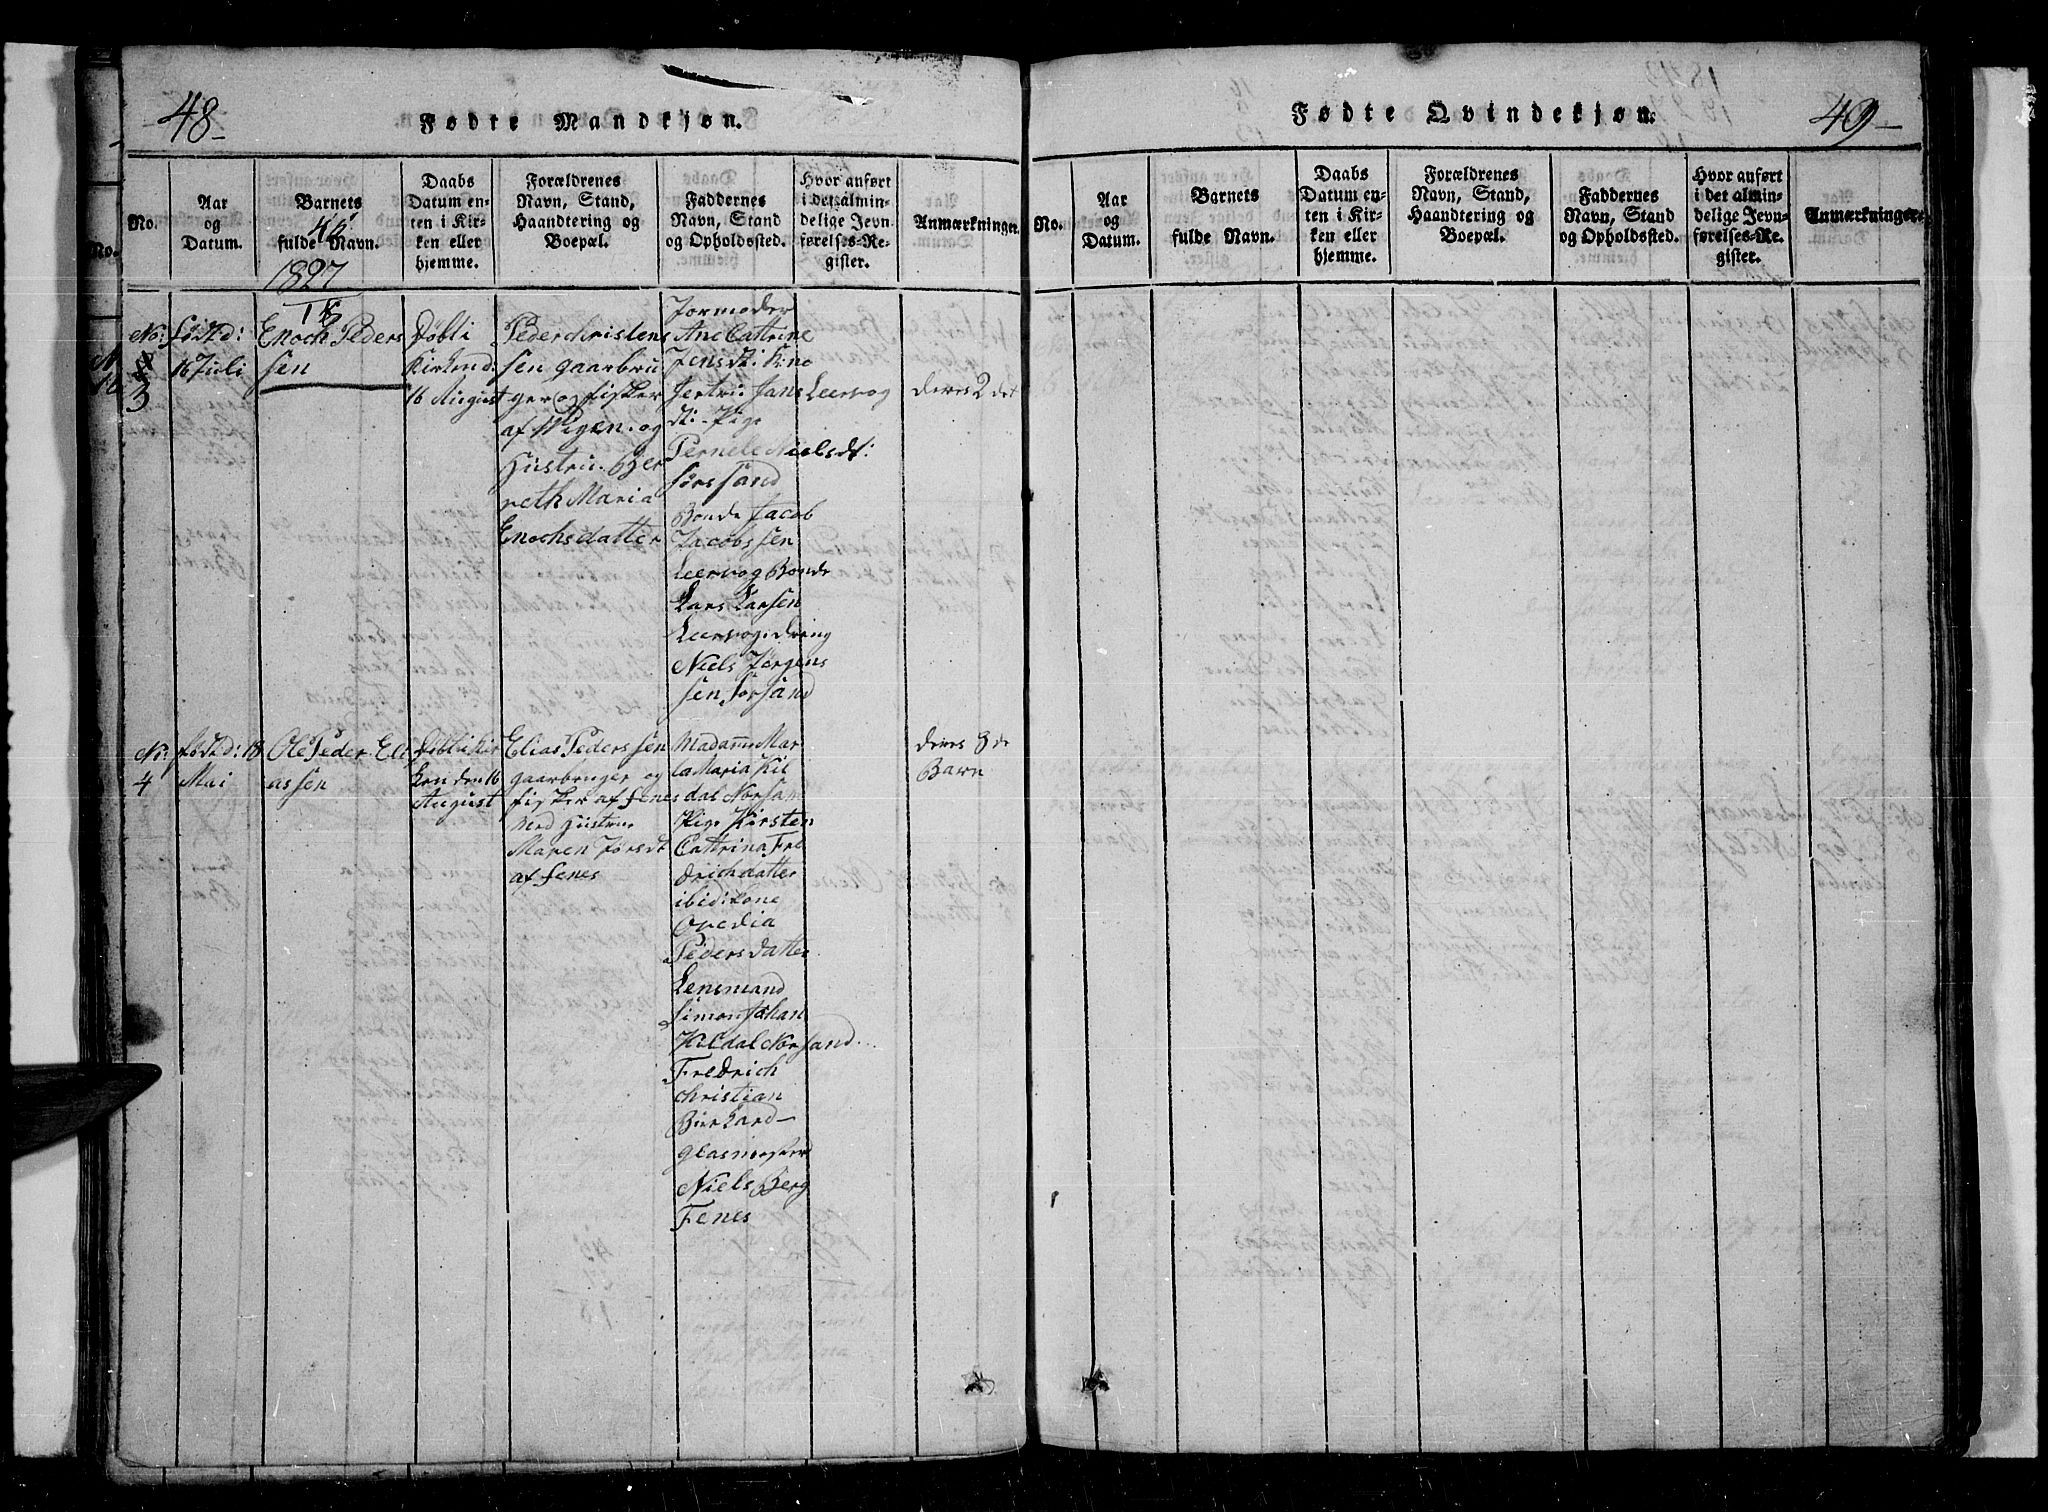 48
Fødte Mandkjøn.
No.
Aar
og
Datum.
Barnets
fulde Navn.
Daabs
Datum en-
ten i Kir-
ken eller
hjemme.
Forældrenes
Navn, Stand,
Haandtering og
Boepæl.
Faddernes
Navn, Stand
og Opholdssted.
Hvor anført
i det almin-
delige Jevn-
førelses-Re-
gister.
Anmærkninger.
1827
No:
3
født d:
16 Juli
Enoch Peders
sen
Døbt i
Kirken d:
16 August
Peder Christens
sen gaarbru
ger og fisker
af Wigen. og
Hustru. Ber
reth Maria
Enochsdatter
Jormoder
Ane Cattrine
Jens dt: Kno
Jertru Jans Leervog
dt. Pige
Pernele Nielsdt:
sørssand
Bonde Jacob
Jacobssen
Leervog Bonde
Lars Larsen
Leervog. dreng
Niels Jørgens
sen Sørsand
deres 2 det
No:
4
født d: 18
Mai
Ole Peder Eli
assen
døbt i Kir
ken den 16
August
Elias Peders sen
gaarbruger og
fisker af Fenes
Hustrue
Maren Jørsdt
af Fenes
Madame Mar
la Maria Kil
dal Norsan
Pige Kirsten
Cattrina Fre
drichdatter
ibid: kone
Ovedia
Peders datter
Lensmand
Simon Johan
Kildal Norsand
Fredrich
Christian
Birkard
glasmester
Niels Berg
Fenes
deres 8 de
Barn
Fødte Qvindekjøn.
49
No.
Aar
og
Datum.
Barnets
fulde Navn.
Daabs
Datum en-
ten i Kir-
ken eller
hjemme.
Forældrenes
Navn, Stand,
Haandtering og
Boepæl.
Faddernes
Navn, Stand
og Opholdssted.
Hvor anført
i det almin-
delige Jevn-
førelses-Re-
gister.
Anmærkninger.